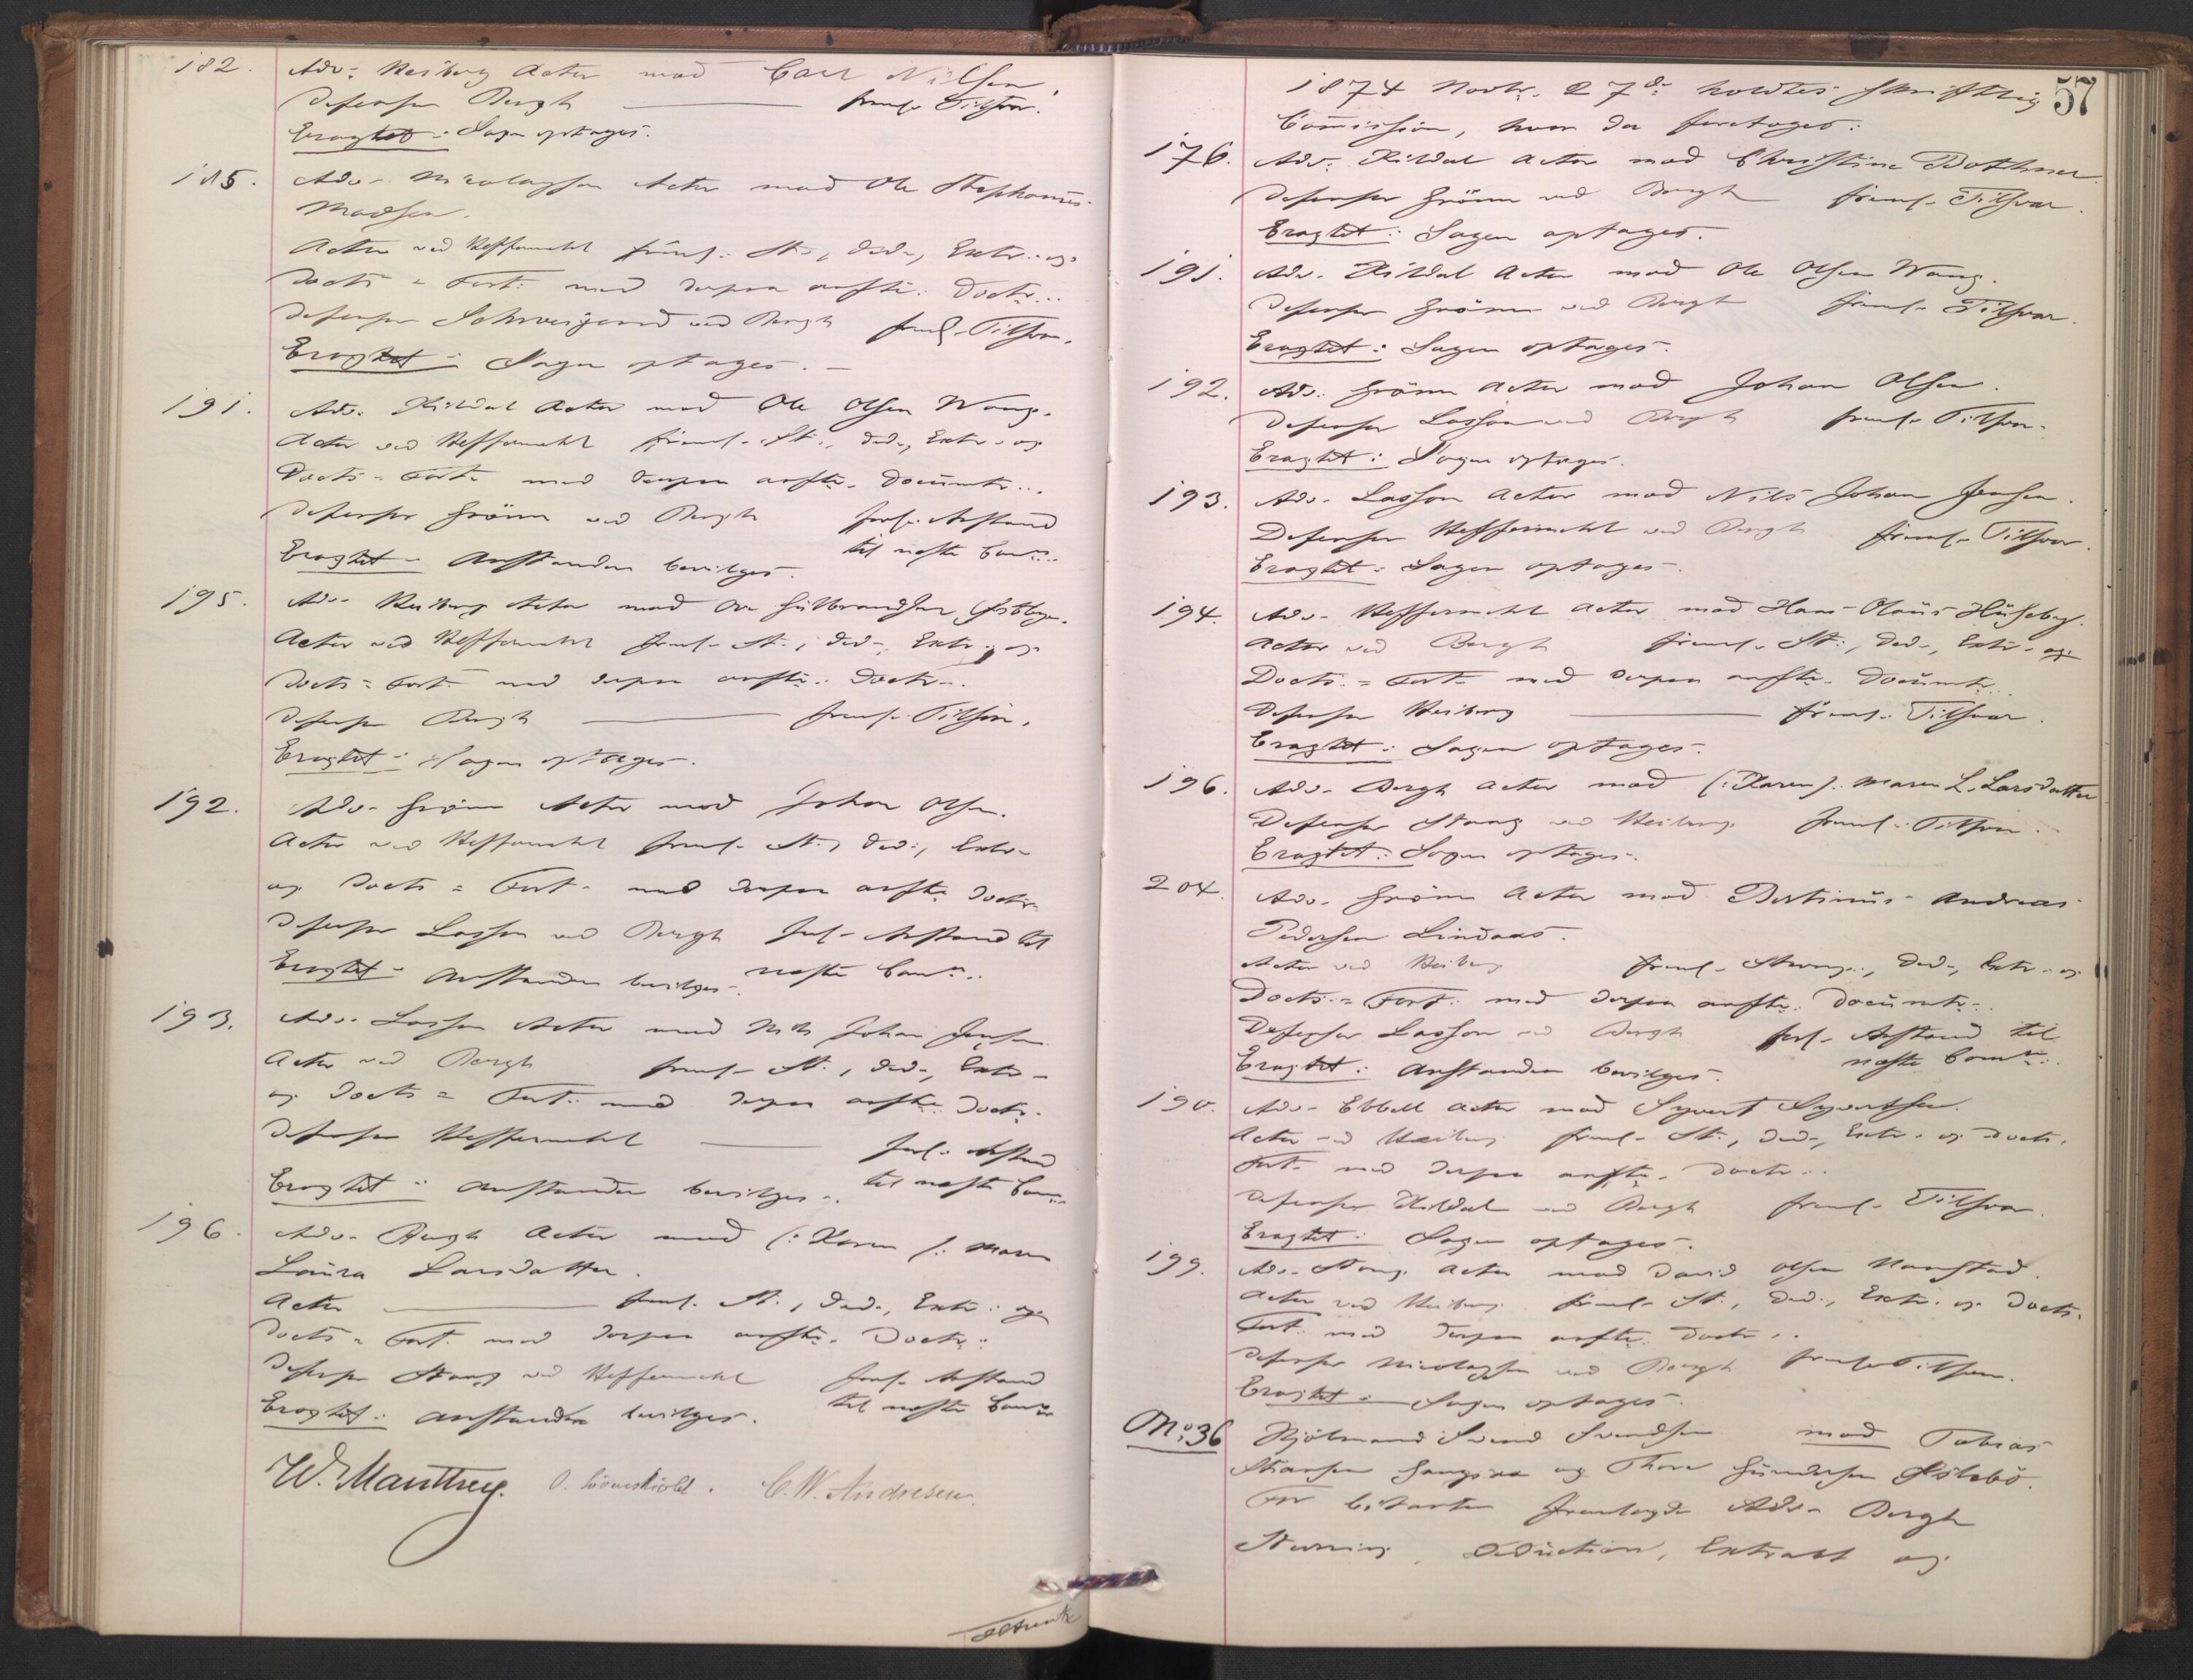 182. Adv. Heiberg Actor mod Carl Nilsen
Defensor Bergh ——— freml. Tilsvar.
Eragtet: Sagen optages.
185. Adv. Nicolaysen Actor mod Ole Stephanus
Madsen.
Actor ved Heffermehl freml. St., Ded., Extr. og
Docts = Fort. med derpaa anførte Doctr.
Defensor Schweigaard ved Bergh freml. Tilsvar.
Eragtet: Sagen optages. —
191. Adv. Kildal Actor mod Ole Olsen Wang.
Actor ved Heffermehl freml. St., Ded., Extr. og
Docts = Fort. med derpaa anførte Documtr.
Defensor Grönn ved Bergh forl. Anstand
til næste Comm.
Eragtet: Anstanden bevilges.
195. Adv. Heiberg Actor mod Ole Gulbrandsen
Actor ved Heffermehl freml. St., Ded., Extr. og
Docts = Fort. med derpaa anførte Doctr.
Defensor Bergh ——— freml. Tilsvar.
Eragtet: Sagen optages.
192. Adv. Grönn Actor mod Johan Olsen.
Actor ved Heffermehl freml. St., Ded., Extr.
og Docts = Fort. med derpaa anførte Doctr.
Defensor Lasson ved Bergh forl. Anstand til
næste Comm.
Eragtet: Anstanden bevilges.
193. Adv. Lasson Actor mod Nils Johan Jensen
Actor ved Bergh freml. St., Ded., Extr.
og Docts = Fort. med derpaa anførte Doctr.
Defensor Heffermehl ——— forl. Anstand
til næste Comm.
Eragtet: Anstanden bevilges.
196. Adv. Bergh Actor mod (: Karen :) Maren
Laura Larsdatter.
Actor ——— freml. St., Ded., Extr. og
Docts = Fort. med derpaa anførte Doctr.
Defensor Stang ved Heffermehl forl. Anstand
til næste Comm.
Eragtet: Anstanden bevilges.
W. Manthey. O. Lövenskiold. C. W. Andresen.
57
1874 Novbr. 27de holdtes skriftlig
Commission, hvor da foretoges:
176. Adv. Kildal Actor mod Christine Bothner.
Defensor Grönn ved Bergh freml. Tilsvar.
Eragtet: Sagen optages.
191. Adv. Kildal Actor mod Ole Olsen Wang.
Defensor Grönn ved Bergh freml. Tilsvar.
Eragtet: Sagen optages.
192. Adv. Grönn Actor mod Johan Olsen.
Defensor Lasson ved Bergh freml. Tilsvar.
Eragtet: Sagen optages.
193. Adv. Lasson Actor mod Nils Johan Jensen.
Defensor Heffermehl ved Bergh freml. Tilsvar.
Eragtet: Sagen optages.
194. Adv. Heffermehl Actor mod Hans Olaus Huseby.
Actor ved Bergh freml. St., Ded., Extr. og
Docts. = Fort. med derpaa anførte Documtr.
Defensor Heiberg ——— freml. Tilsvar.
Eragtet: Sagen optages.
196. Adv. Bergh Actor mod (: Karen :) Maren L. Larsdatter
Defensor Stang ved Heiberg freml. Tilsvar.
Eragtet: Sagen optages.
204. Adv. Grönn Actor mod Bertinus Andreas
Pedersen Lindaas.
Actor ved Heiberg freml. Stevng., Ded., Extr. og
Docts. = Fort. med derpaa anførte Documtr.
Defensor Lasson ved Bergh forl. Anstand til
næste Comm.
Eragtet: Anstanden bevilges.
190. Adv. Ebbell Actor mod Syvert Syvertsen.
Actor ved Heiberg freml. St., Ded., Extr. og Docts.
Fort. med derpaa anførte Doctr.
Defensor Kildal ved Bergh freml. Tilsvar.
Eragtet: Sagen optages.
199. Adv. Stang Actor mod David Olsen
Actor ved Heiberg freml. St., Ded., Extr. og Docts.
Fort. med derpaa anførte Doctr.
Defensor Nicolaysen ved Bergh freml. Tilsvar.
Eragtet: Sagen optages.
No. 36 Svend Svendsen mod Tobias
og Thore Gundersen
For Citanten fremlagde Adv. Bergh
Stevning, Deduction, Extract og